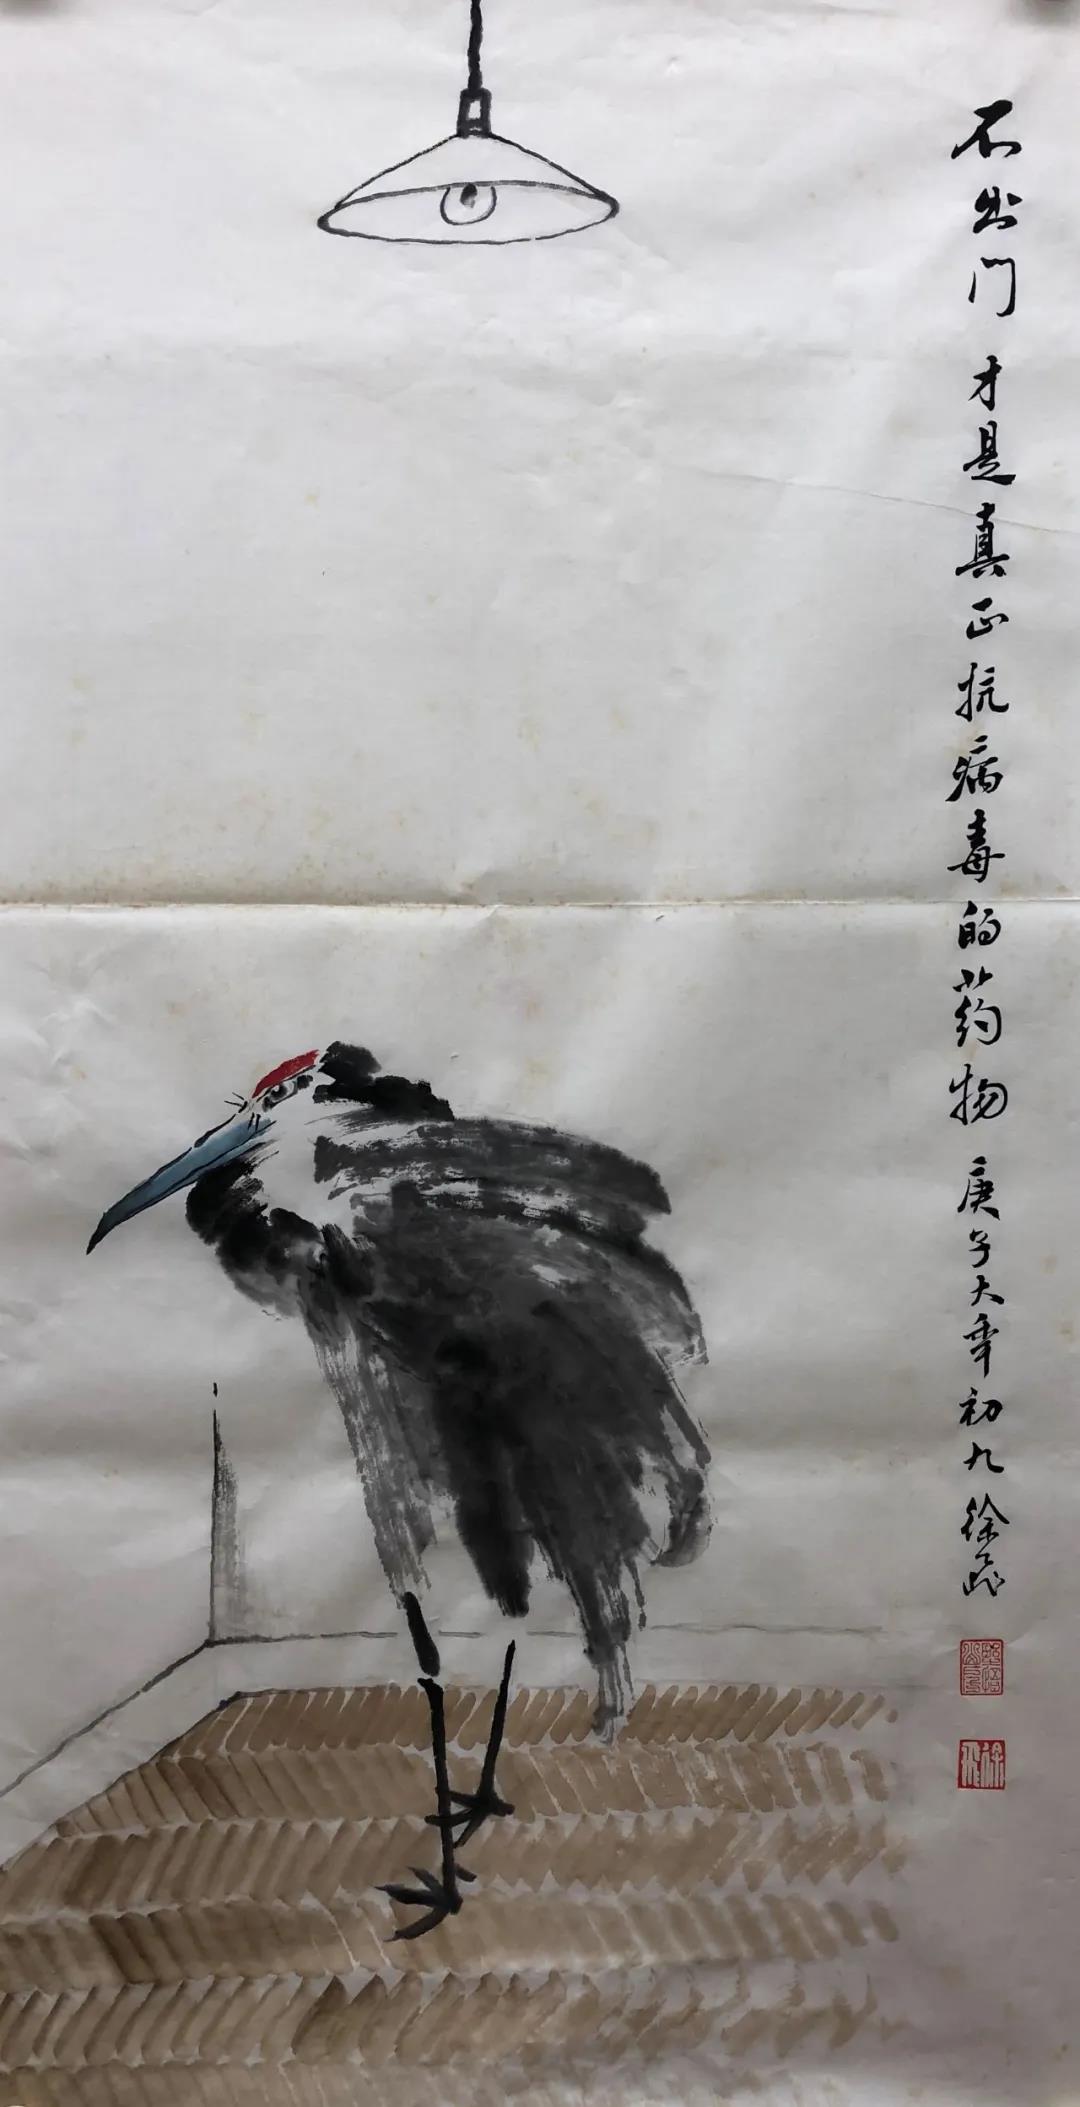 不出门 才是真正抗病毒的药物 庚子大年初九 徐飞
徐飞